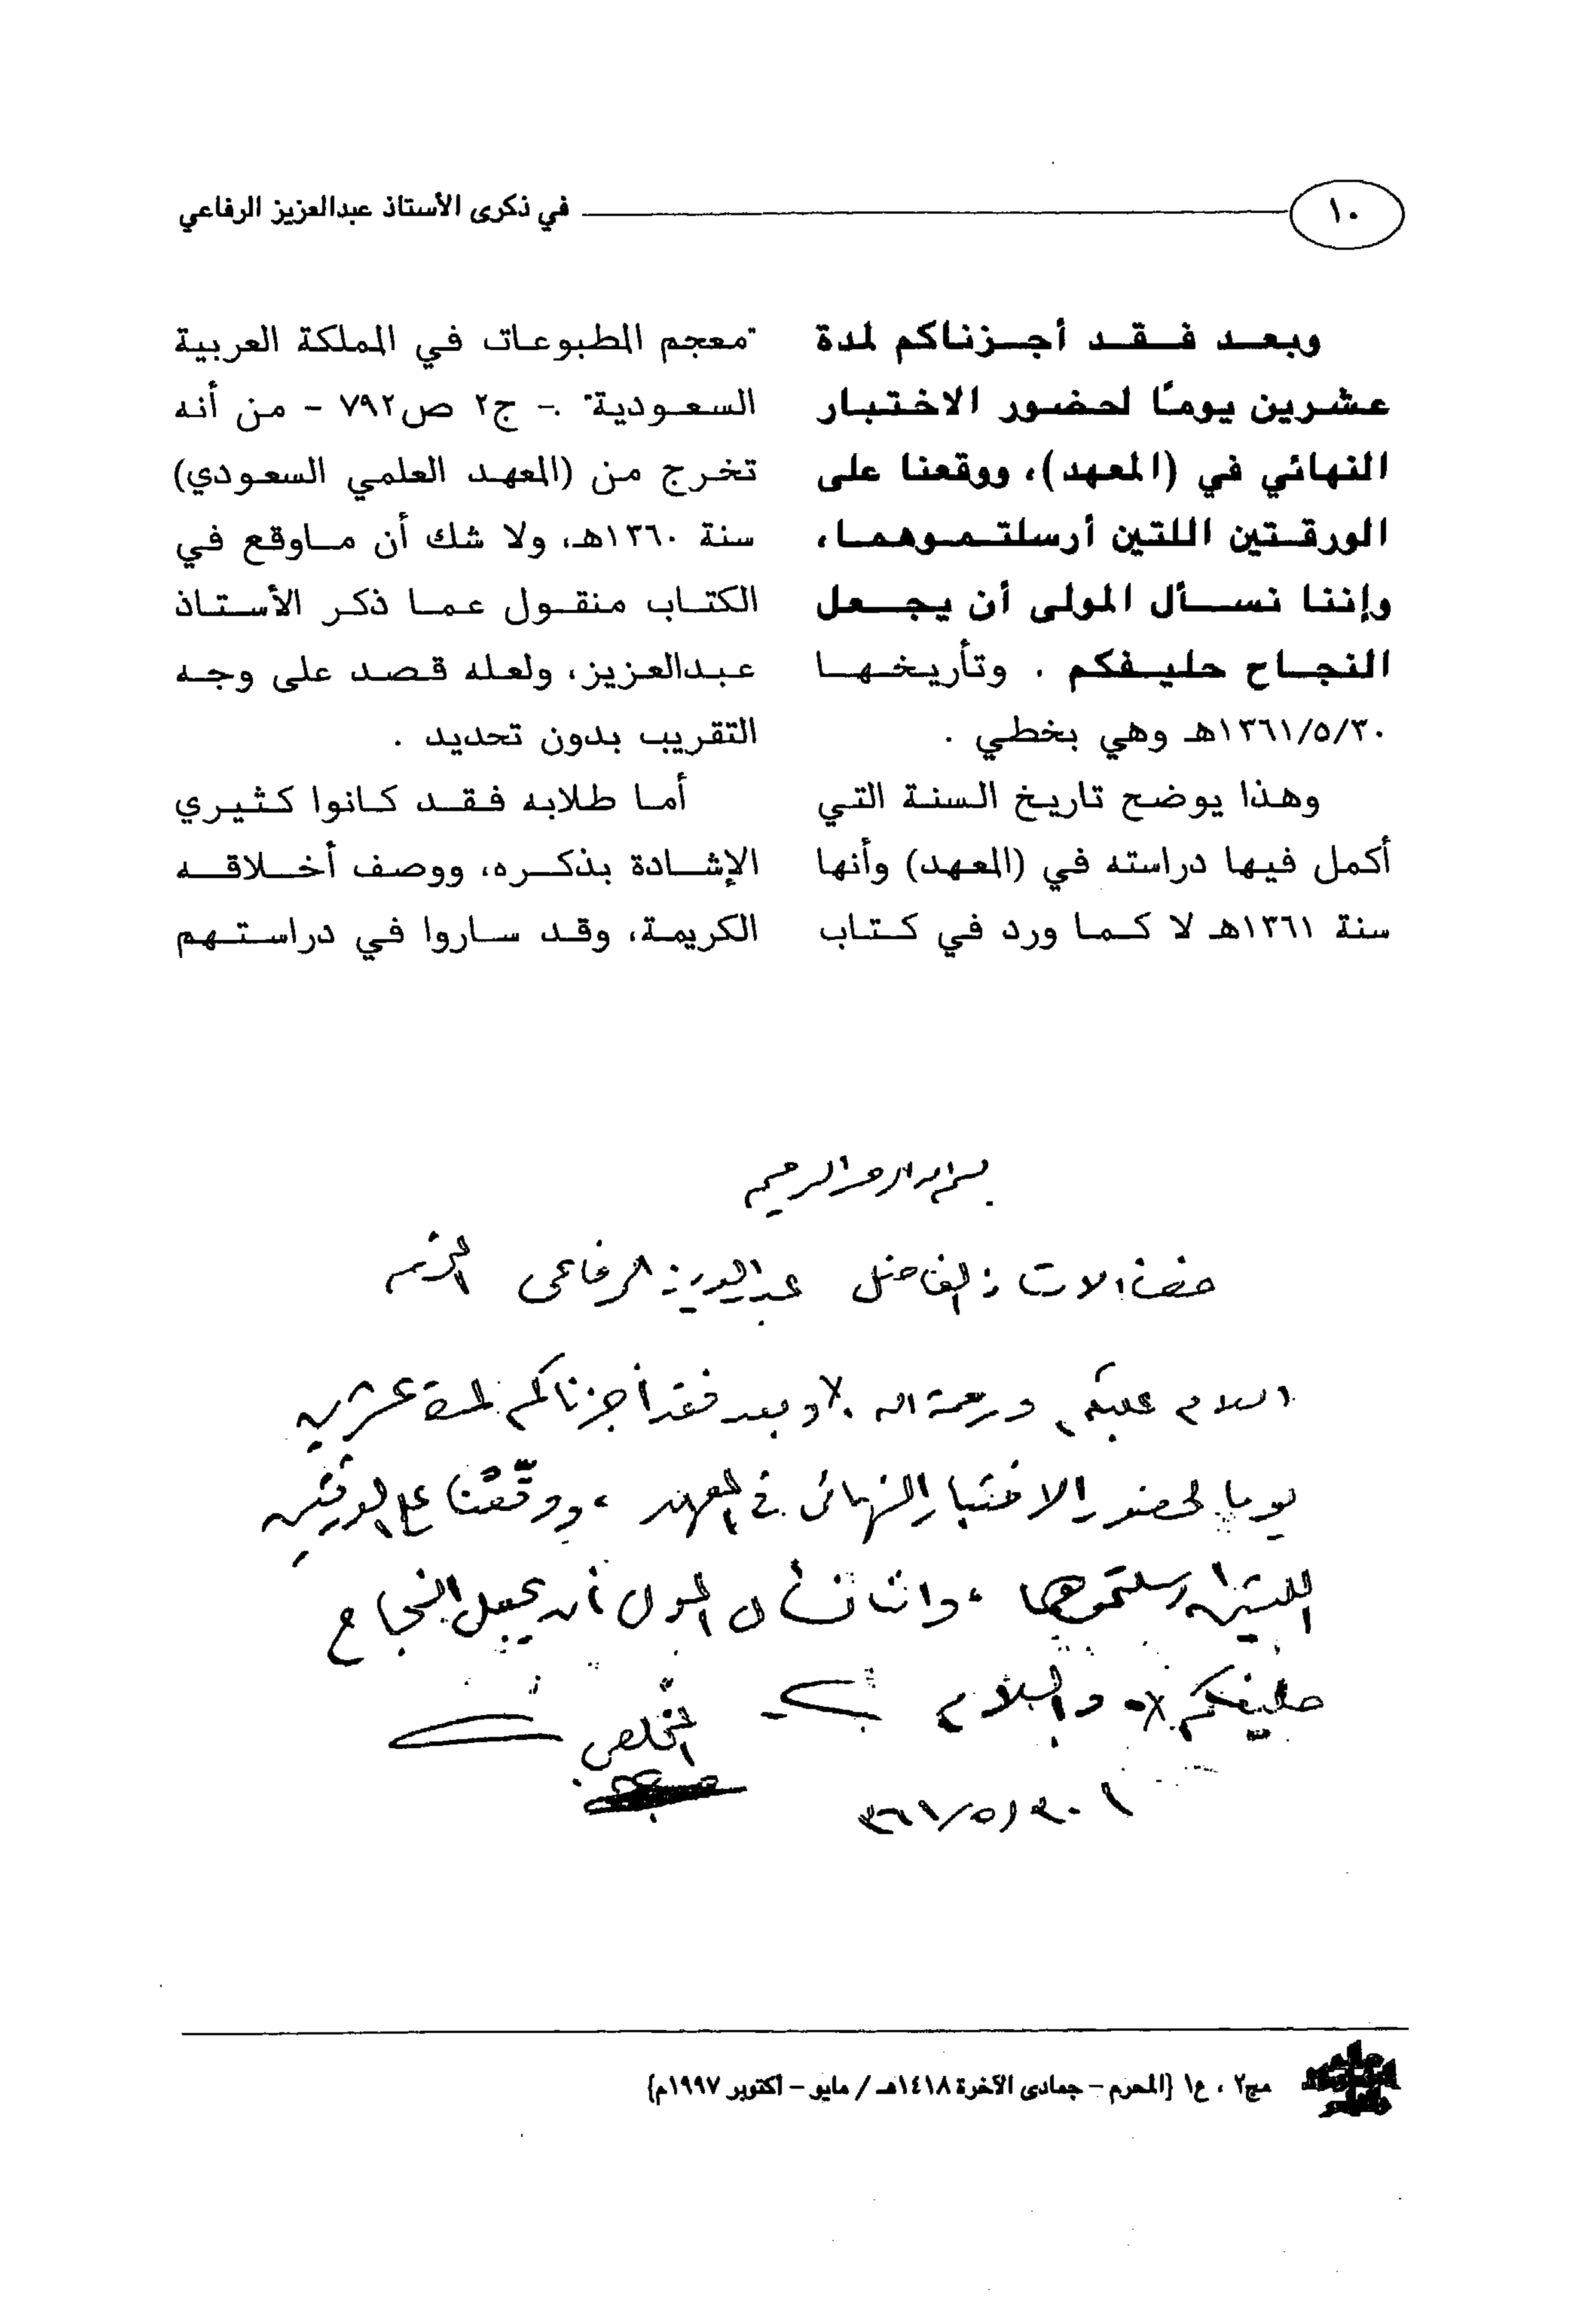 ١٠
في ذكرى الأستاذ عبدالعزيز الرفاعي
وبعد فقد أجزناكم لمدة
عشرين يومًا لحضور الاختبار
النهائي في (المعهد)، ووقعنا على
الورقتين اللتين أرسلتموهما،
وإننا نسأل المولى أن يجعل
النجاح حليفكم . وتأريخها
١٣٦١/٥/٣٠هـ وهي بخطي .
وهذا يوضح تاريخ السنة التي
أكمل فيها دراسته في (المعهد) وأنها
سنة ١٣٦١هـ لا كما ورد في كتاب
"معجم المطبوعات في المملكة العربية
السعودية" .- ج٢ ص٧٩٢ - من أنه
تخرج من (المعهد العلمي السعودي)
سنة ١٣٦٠هـ، ولا شك أن ماوقع في
الكتاب منقول عما ذكر الأستاذ
عبدالعزيز، ولعله قصد على وجه
التقريب بدون تحديد .
أما طلابه فقد كانوا كثيري
الإشادة بذكره، ووصف أخلاقه
الكريمة، وقد ساروا في دراستهم
بسم الله الرحمن الرحيم
حضرة الاستاذ الفاضل عبدالعزيز الرفاعى المحترم
السلام عليكم ورحمة الله وبعد فقد أجزناكم لمدة عشرين
يوما لحضور الاختبار النهائى في المعهد، ووقّعْنا على الورقتين
اللتين ارسلتموهما، واننا نسأل المولى أن يجعل النجاح
حليفكم والسلام
المخلص
٣٠/٥/٣٦١
مج٢ ، ع١ {المحرم - جمادى الآخرة ١٤١٨هـ / مايو - أكتوبر ١٩٩٧م}